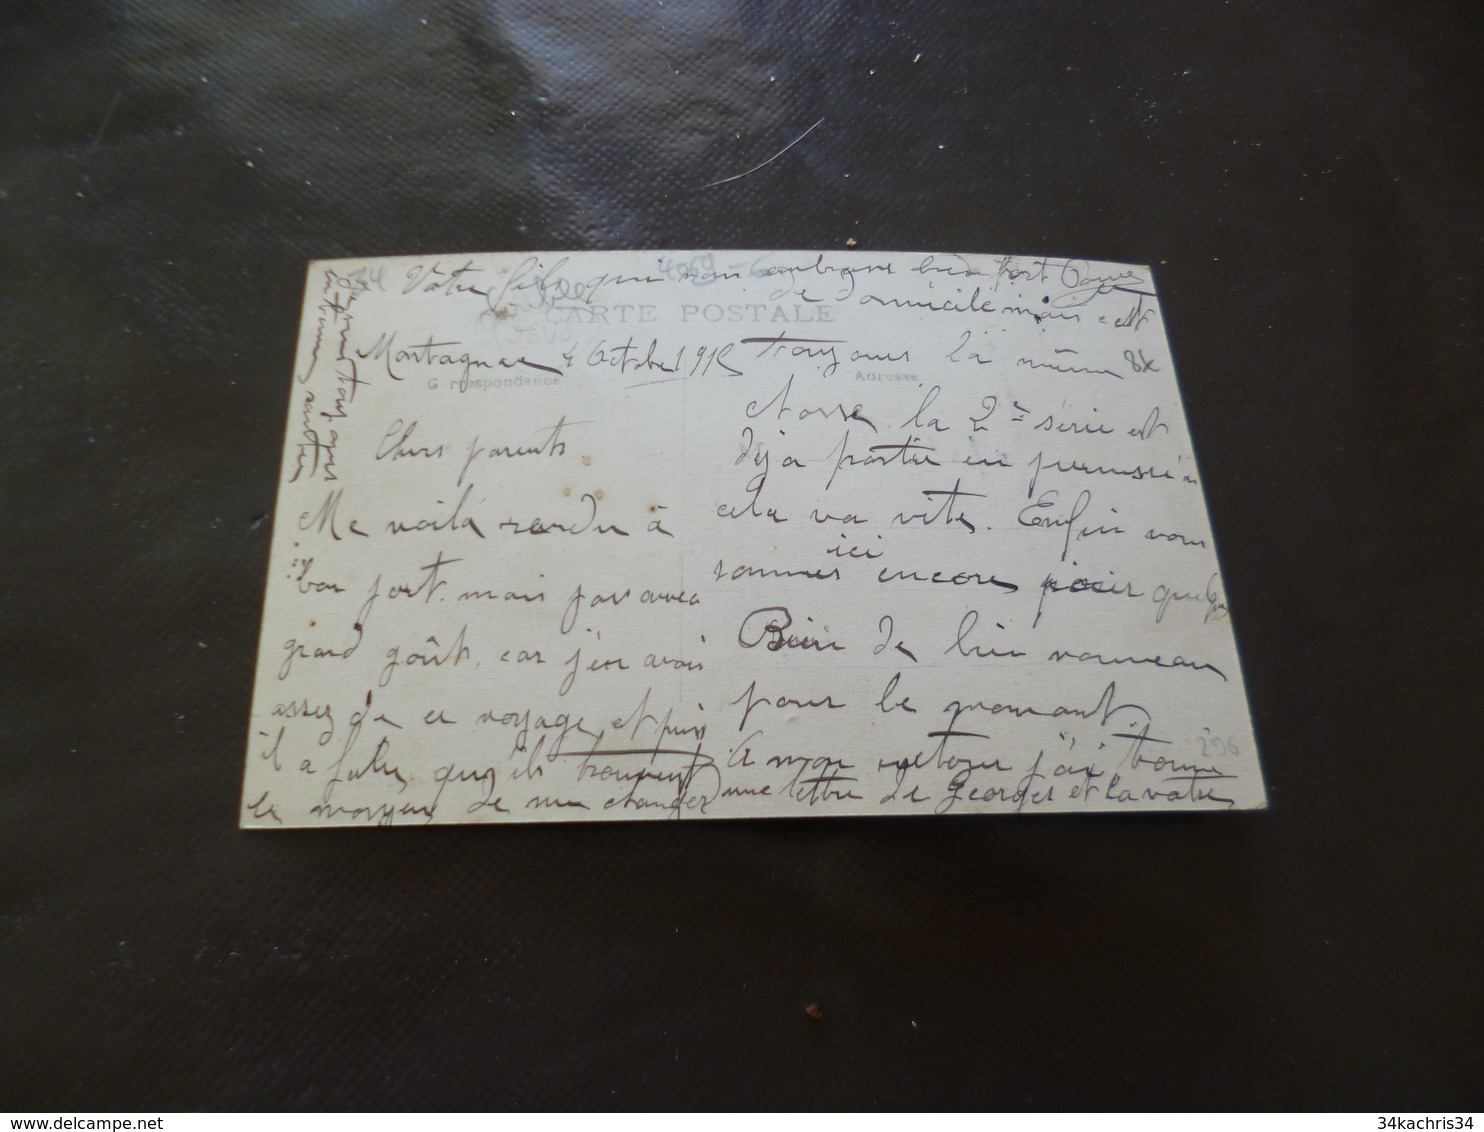 Votre fils qui vous embrasse bien fort
CARTE POSTALE
Montagnac 4 Octobre 1915
Correspondance
Chers parents
Me voilà rendu à
bon port. mais pas avec
grand goût, car j'en avais
assez de ce voyage et puis
il a fallu qu'ils trouvent
le moyen de me changer
de domicile mais c'est
toujours la même
Adresse
chose, la 2e série est
déjà partie en permission
cela va vite. Enfin nous
sommes ici encore pour quelques
Rien de bien nouveau
pour le moment.
A mon retour j'ai trouvé
une lettre de Georges et la votre
je suis toujours
en bonne santé
34
4069-6
8x
296
34kachris34